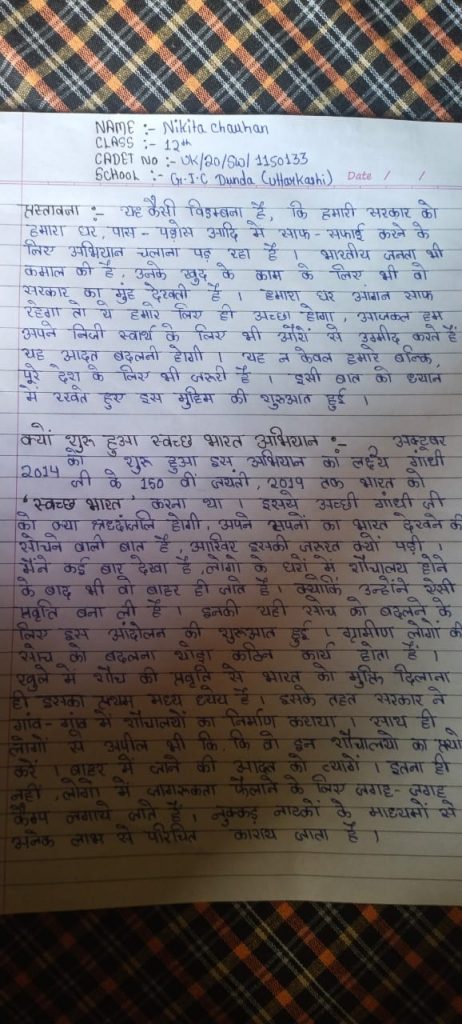 NAME :- Nikita chauhan
CLASS :- 12th
CADET No :- UK/20/SW/1150133
SCHOOL :- G.I.C Dunda (Uttarkashi) Date / /
प्रस्तावना :- यह कैसी विडम्बना है, कि हमारी सरकार को
हमारा घर, पास-पड़ोस आदि में साफ-सफाई करने के
लिए अभियान चलाना पड़ रहा है । भारतीय जनता भी
कमाल की है, उनके खुद के काम के लिए भी वो
सरकार का मुंह देखती है । हमारा घर आंगन साफ
रहेगा तो ये हमारे लिए ही अच्छा होगा, आजकल हम
अपने निजी स्वार्थ के लिए भी औरों से उम्मीद करते हैं
यह आदत बदलनी होगी । यह न केवल हमारे बल्कि,
पूरे देश के लिए भी जरूरी है । इसी बात को ध्यान
में रखते हुए इस मुहिम की शुरुआत हुई ।
क्यों शुरू हुआ स्वच्छ भारत अभियान :- अक्टूबर
2014 को शुरू हुआ इस अभियान का लक्ष्य गांधी
जी के 150 वी जयंती, 2019 तक भारत को
'स्वच्छ भारत' करना था । इससे अच्छी गांधी जी
को क्या श्रद्धांजलि होगी, अपने सपनों का भारत देखने की
सोचने वाली बात है, आखिर इसकी जरूरत क्यों पड़ी
मैंने कई बार देखा है, लोगो के घरों में शौचालय होने
के बाद भी वो बाहर ही जाते हैं । क्योंकि उन्होंने ऐसी
प्रवृति बना ली है । इनकी यही सोच को बदलने के
लिए इस आंदोलन की शुरुआत हुई । ग्रामीण लोगों की
सोच को बदलना थोड़ा कठिन कार्य होता है ।
खुले में शौच की प्रवृति से भारत को मुक्ति दिलाना
ही इसका प्रथम मध्य ध्येय है । इसके तहत सरकार ने
गांव-गांव में शौचालयों का निर्माण कराया । साथ ही
लोगों से अपील भी कि, कि वो इन शौचालयों का प्रयो
करें । बाहर में जाने की आदत को त्यागें । इतना ही
नहीं, लोगों में जागरूकता फैलाने के लिए जगह-जगह
कैम्प लगाये जाते हैं । नुक्कड़ नाटकों के माध्यमों से
अनेक लाभ से परिचित काराय जाता है ।